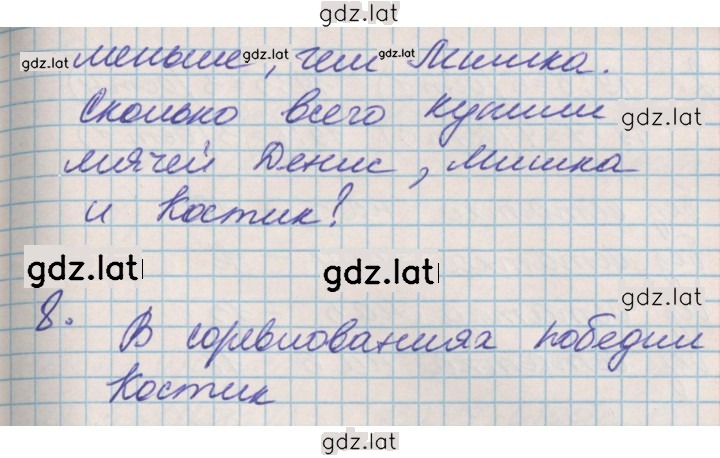 gdz.lat
gdz.lat меньше, gdz.lat чем gdz.lat Мишка.
Сколько всего купили gdz.lat
мячей Денис, Мишка
и Костик?
gdz.lat gdz.lat
gdz.lat
8. В соревнованиях победил
Костик
gdz.lat